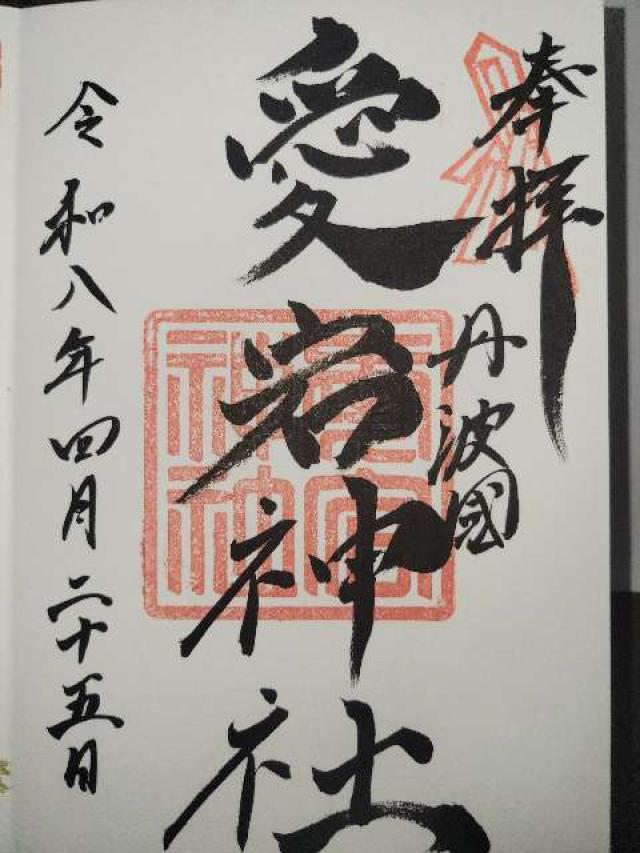 奉拝
丹波國
愛宕神社
令和八年四月二十五日